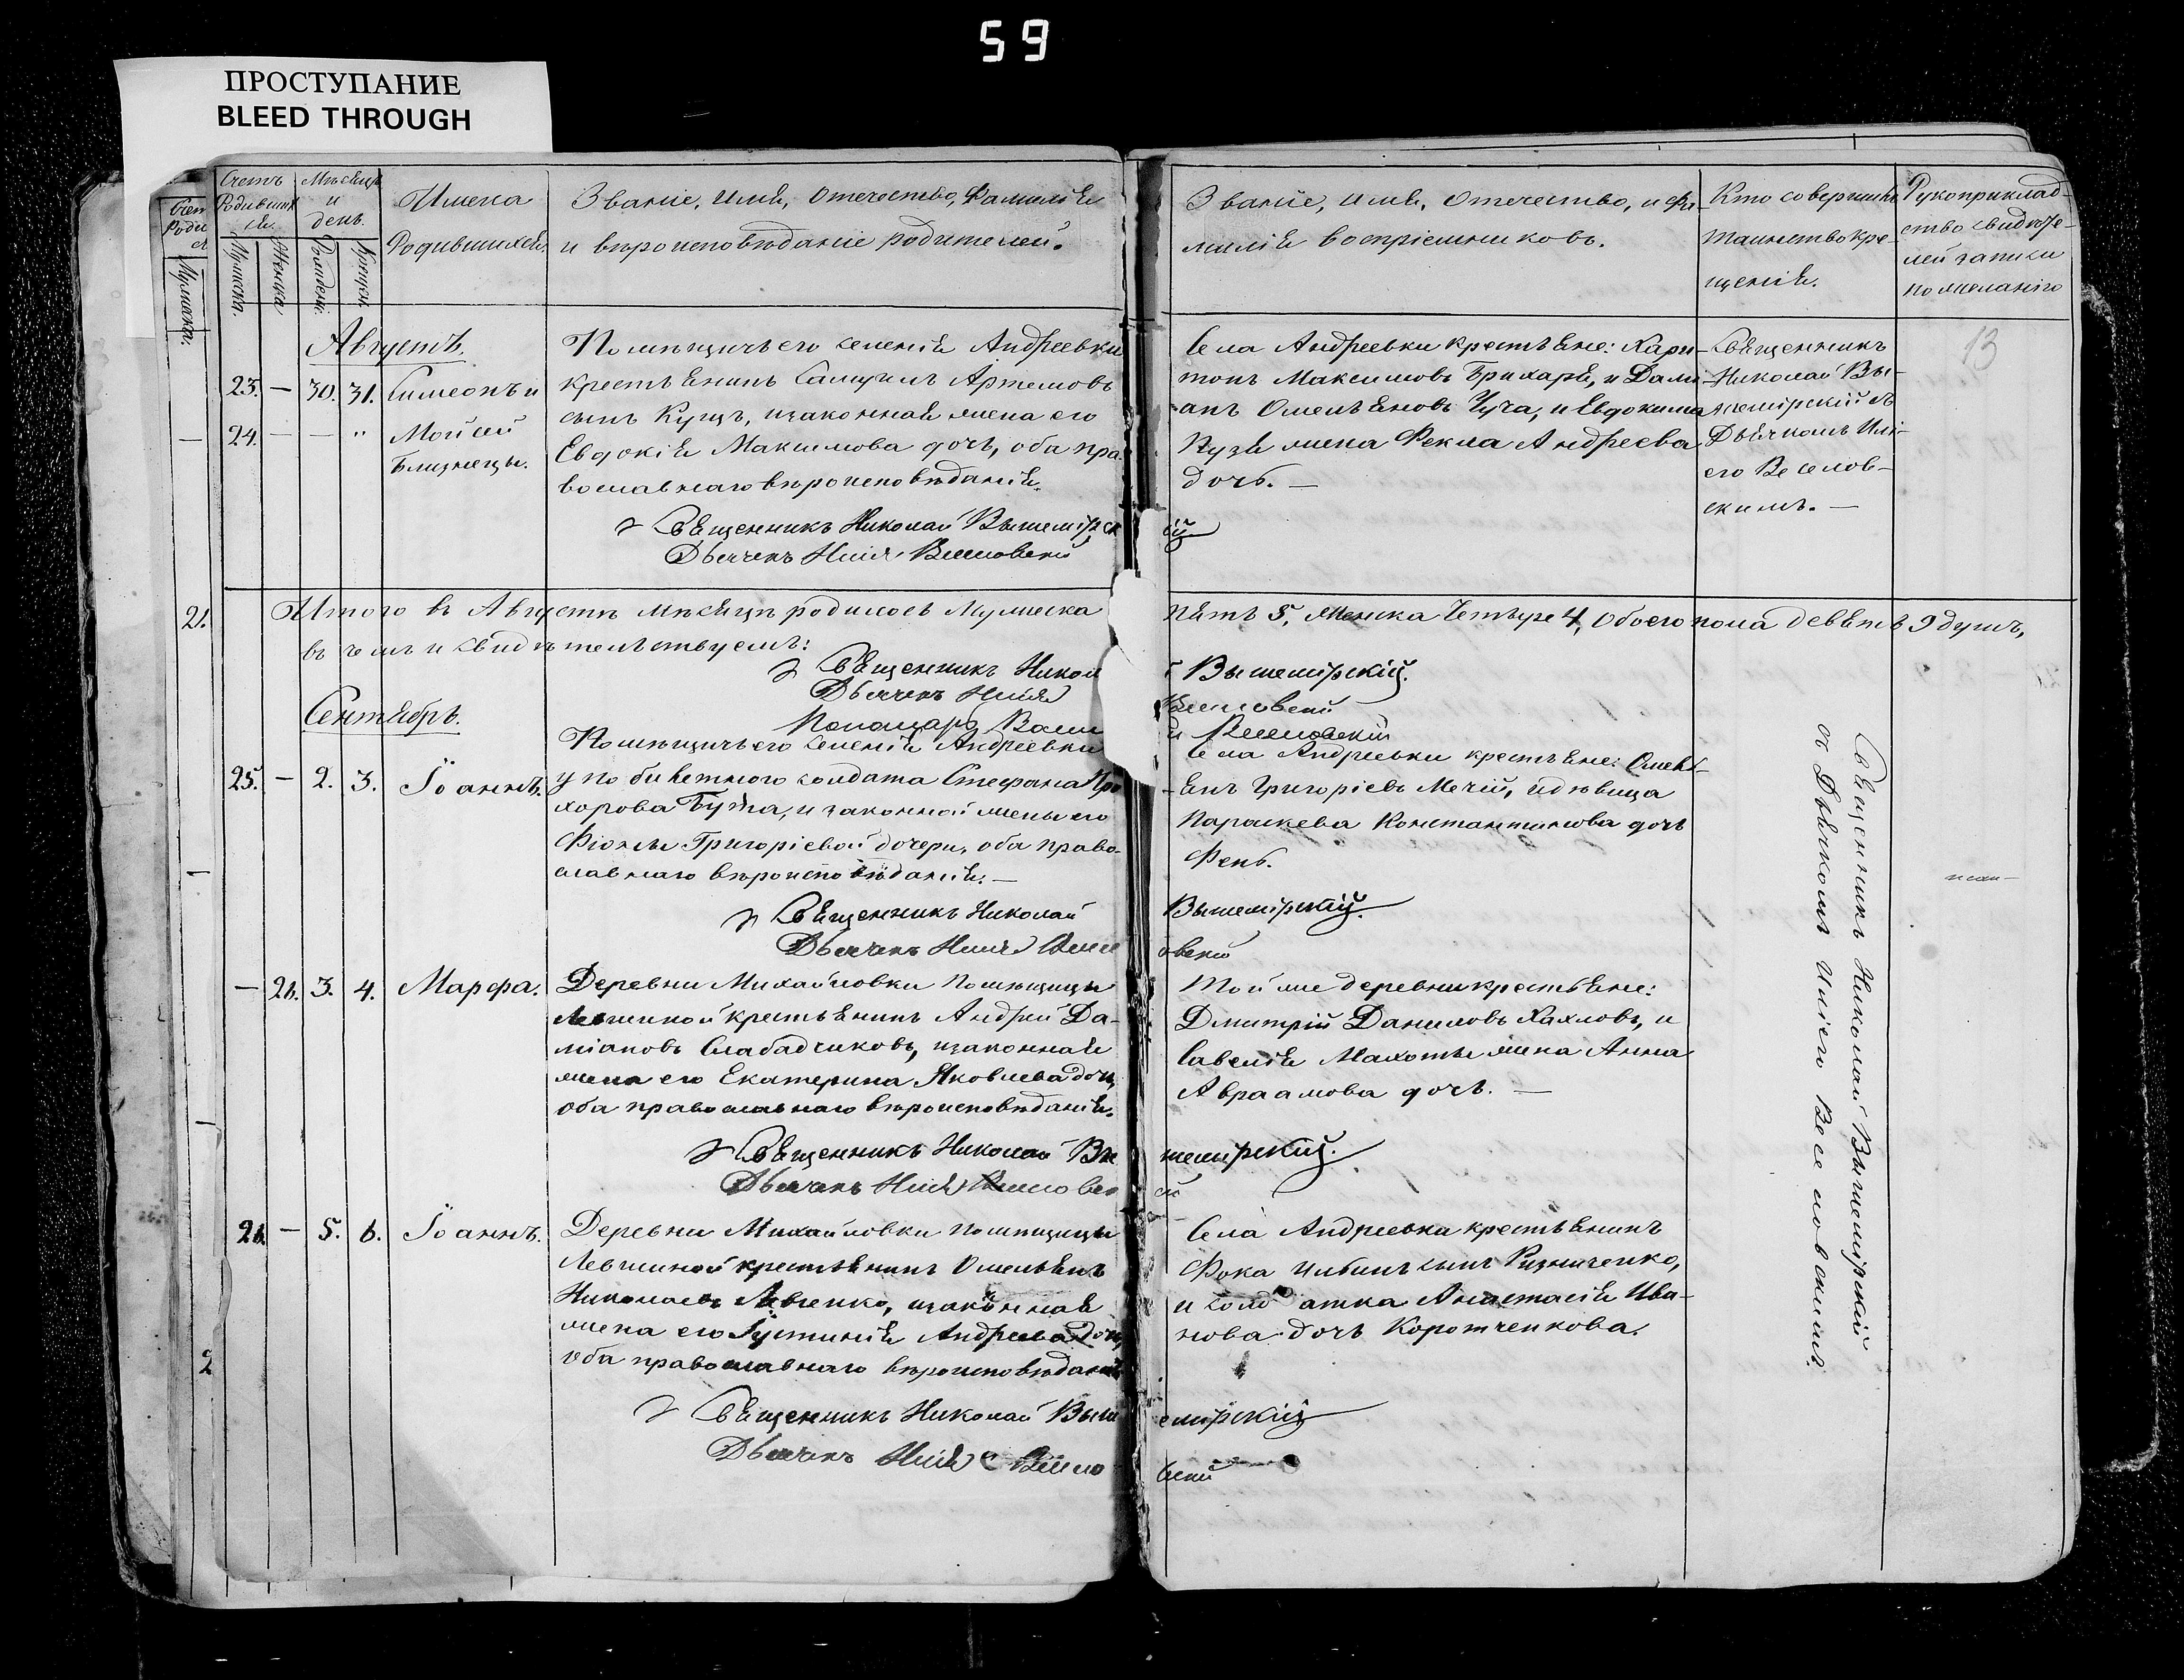 59
ПРОСТУПАНИЕ
BLEED THROUGH
Счетъ
Родивших
ся.
Мужеска.
Женска
Мѣсяцъ
и
день.
Рожден:
Крещен:
Имена
Родившихся.
Званіе, имя, отечество, фамилія
и вѣроисповѣданіе родителей.
Званіе, имя, отечество, и фа-
милія воспріемниковъ.
Кто совершилъ
таинство кре-
щенія.
Рукоприклад-
ство свидѣте-
лей записи
по желанію
13
Августъ.
23. — 30. 31. Симеонъ и
24. — — " Мойсей
Близнецы.
Помѣщичьего селенія Андреевки
крестьянинъ Самуилъ Артемовъ
сынъ Куцъ, изаконная жена его
Евдокія Максимова дочь, оба пра-
вославнаго вѣроисповѣданія.
Священникъ Николай Вышемірскій
Дьячекъ Илія Веселовскій
Села Андреевки крестьяне: Хари-
тонъ Максимовъ Брихарь, и Дами-
анъ Омельяновъ Чуча, и Евдокима
Кузя жена Фекла Андреева
дочь. —
Священникъ
Николай Вы-
шемірскій съ
Дьячкомъ Илі-
его Веселов-
скимъ. —
21.
Итого въ Августѣ мѣсяцѣ родилось Мужеска пять 5, Женска Четыре 4, Обоего пола девять 9 душъ,
въ чемъ и свидѣтельствуемъ:
Священникъ Николай Вышемірскій.
Дьячекъ Илія Веселовскій
Пономарь Веселовскій
Сентябрь.
25. — 2. 3. Іоаннъ.
Помѣщичьего селенія Андреевки
у побилетного солдата Стефана Про-
хорова Бута, и законной жены его
Фіоклы Григоріевой дочери, оба право-
славнаго вѣроисповѣданія. —
Священникъ Николай Вышемірскій.
Дьячекъ Илія Веселовскій
Села Андреевки крестьяне: Омель-
янъ Григоріевъ Мечій, и дѣвица
Параскева Константинова дочь
Фень.
— 26. 3. 4. Марфа.
Деревни Михайловки помѣщицы
Левшиной крестьянинъ Андрей Да-
міановъ Слабадчиковъ, изаконная
жена его Екатерина Яковлева дочь,
оба православнаго вѣроисповѣданія.
Священникъ Николай Вышемірскій.
Дьячекъ Илія Веселовскій
Той же деревни крестьяне:
Дмитрій Даниловъ Хахловъ, и
Савелія Махоты жена Анна
Авраамова дочь. —
26. — 5. 6. Іоаннъ.
Деревни Михайловки помѣщицы
Левшиной крестьянинъ Омельянъ
Николаевъ Левченко, изаконная
жена его Іустинія Андреева дочь,
оба православнаго вѣроисповѣданія
Священникъ Николай Вышемірскій
Дьячекъ Илія Веселовскій
Села Андреевка крестьянинъ
Фока Ильинъ сынъ Ризниченко,
и солдатка Анастасія Ива-
нова дочь Коротченкова.
Священникъ Николай Вышемірскій
съ Дьячкомъ Иліего Веселовскимъ.
2